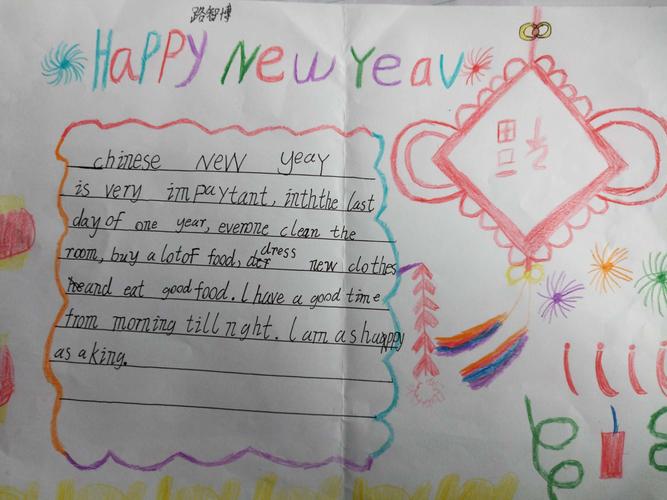 路智博
HAPPY New Yeav
chinese New yeay
is very impaytant, inththe last
day of one year, everone clean the
room, buy a lotof food, dress new clothes
and eat good food. I have a good time
from morning till nght. I am as happy
as a king.
福